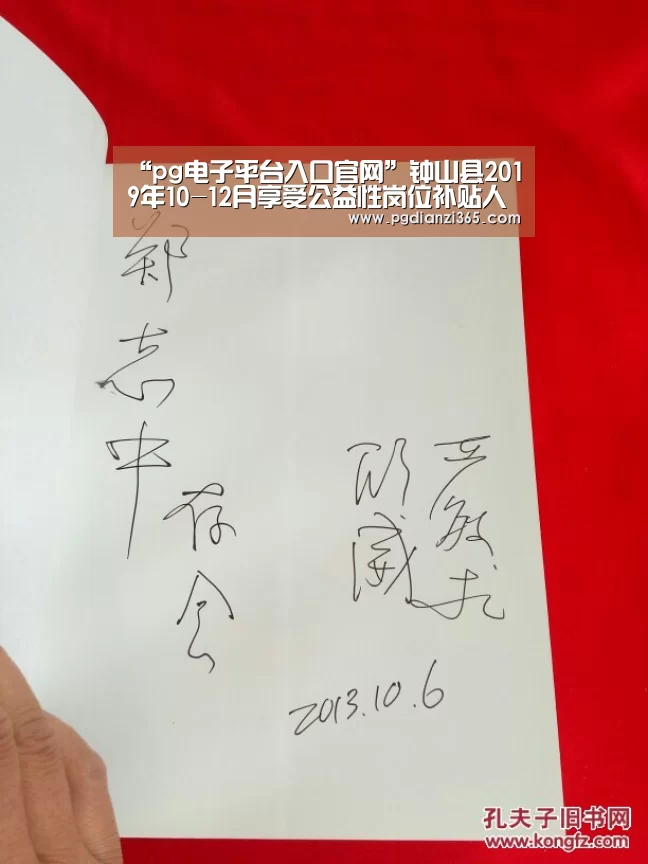 “pg电子平台入口官网”钟山县201
9年10-12月享受公益性岗位补贴人
www.pgdianzi365.com
郑志中
存念
2013.10.6
孔夫子旧书网
www.kongfz.com